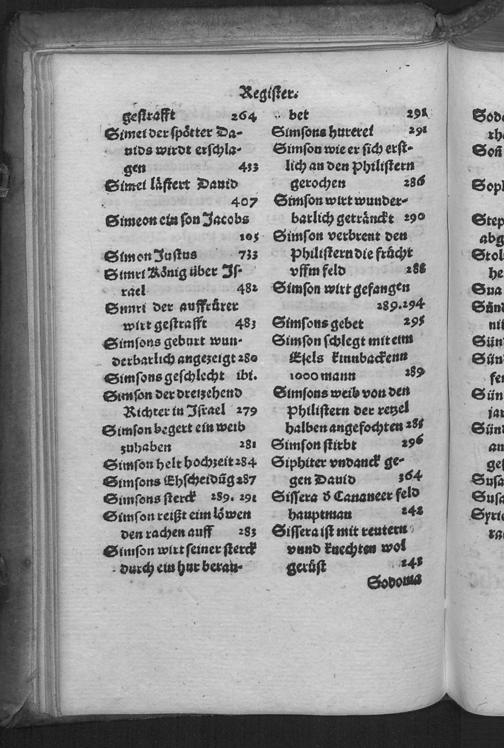 Register.
gestrafft 264
Simei der spötter Da-
uids wirdt erschla-
gen 433
Simei lästert Dauid
407
Simeon ein son Jacobs
105
Simon Justus 733
Simri König über Is-
rael 482
Simri der auffrürer
wirt gestrafft 483
Simsons geburt wun-
derbarlich angezeigt 280
Simsons geschlecht ibi.
Simson der dreizehend
Richter in Israel 279
Simson begert ein weib
zuhaben 281
Simson helt hochzeit 284
Simsons Ehscheidūg 287
Simsons sterck 289. 291
Simson reißt eim löwen
den rachen auff 283
Simson wirt seiner sterck
durch ein hur berau-
bet 291
Simsons hurerei 291
Simson wie er sich erst-
lich an den Philistern
gerochen 286
Simson wirt wunder-
barlich getränckt 290
Simson verbrent den
Philistern die frücht
vffm feld 288
Simson wirt gefangen
289.294
Simsons gebet 295
Simson schlegt mit eim
Esels kinnbackenn
1000 mann 289
Simsons weib von den
Philistern der retzel
halben angefochten 285
Simson stirbt 296
Siphiter vndanck ge-
gen Dauid 364
Sissera d Cananeer feld
hauptman 242
Sissera ist mit reutern
vnnd knechten wol
gerüst 241
Sodoma